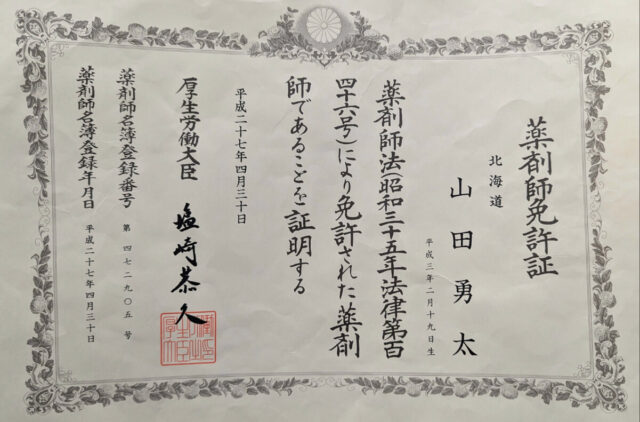 薬剤師免許証
北海道
山田勇太
平成三年二月十九日生
薬剤師法(昭和三十五年法律第百
四十六号)により免許された薬剤
師であることを証明する
平成二十七年四月三十日
厚生労働大臣 塩崎恭久
薬剤師名簿登録番号 第 四七二九〇五 号
薬剤師名簿登録年月日 平成二十七年四月三十日